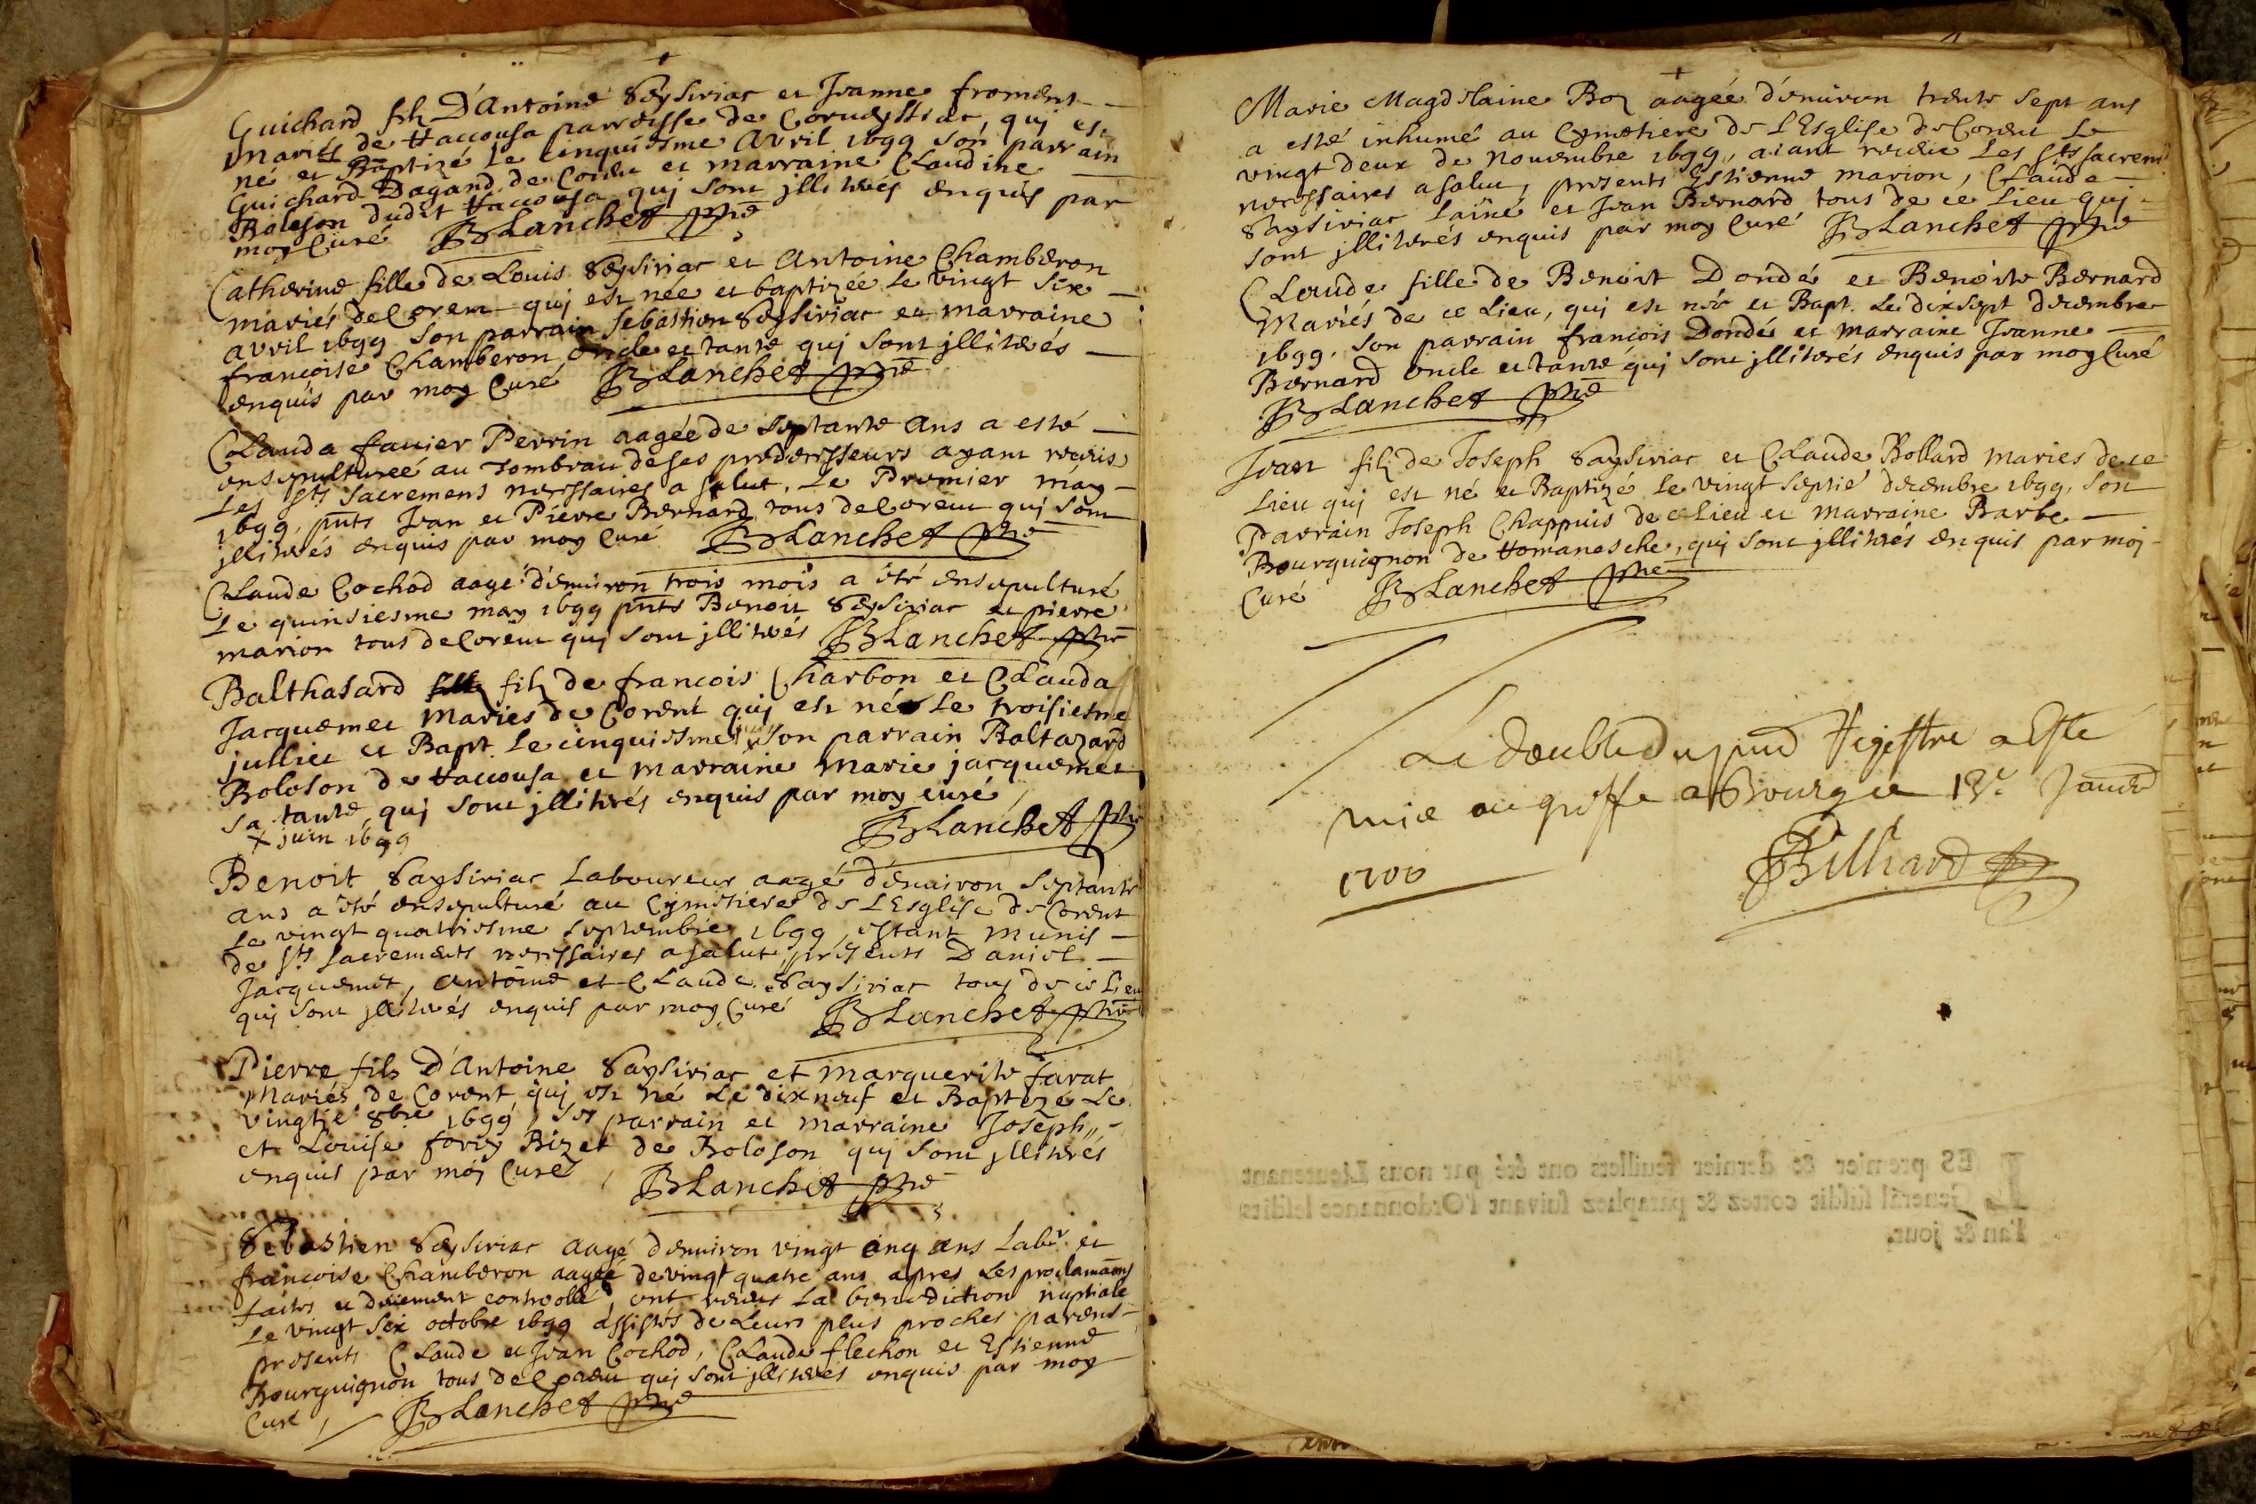 Guichard filz D'Antoine Seysiriac et Jeanne froment
Mariés de Haccousa parroisse de Corveyssiac, qui est
né et Baptizé le cinquiesme Avril 1699 son parrain
Guichard Dagand de Corent et marraine Claudine
Boloson dudit Haccousa qui sont jllitérés enquis par
moy Curé JBLanchet ptre
Catherine fille de Louis Seysiriac et Antoine Chamberon
mariés de Corent qui est née et baptizée le vingt six
avril 1699 son parrain sebastien Seysiriac et marraine
francoise Chamberon oncle et tante qui sont jllitérés
enquis par moy Curé JBLanchet ptre
Clauda favier Perrin aagée de septante ans a esté
ensepulturée au tombeau de ses predecesseurs ayant receus
Les sts sacremens necessaires a salut, Le Premier may
1699, pnts Jean et Pierre Bernard tous de Corent qui sont
jllitérés enquis par moy Curé JBLanchet ptre
Claude Cochod aagé d'environ trois mois a été ensepulturé
Le quinsiesme may 1699 pnts Benoit Seysiriac et pierre
marion tous de Corent qui sont jllitérés JBLanchet ptre
Balthasard filz de francois Charbon et Clauda
Jacquemet Mariés de Corent qui est né Le troisiesme
julliet et Bapt Le cinquiesme son parrain Baltazard
Boloson de Haccousa et marraine Marie jacquemet
sa tante qui sont jllitérés enquis par moy curé
x juin 1699 JBLanchet ptre
Benoit Saysiriac Laboureur aagé d'environ septante
ans a été ensepulturé au Cymetiere de L'Esglise de Corent
Le vingt quatriesme septembre 1699, estant munis
de sts sacrements necessaires a salut, présents Daniel
Jacquemet, Antoine et Claude Saysiriac tous de ce Lieu
qui sont jllitérés enquis par moy Curé JBLanchet ptre
Pierre fils D'Antoine Saysiriac et marguerite farat
Mariés de Corent, qui est né Le dixneuf et Baptizé Le
vingtie 8bre 1699, ses parrain et marraine Joseph
et Louise forey Bizet de Boloson qui sont jllitérés
enquis par moj Curé, JBLanchet ptre
Sebastien Seysiriac aagé d'environ vingt cinq ans Labr et
francoise Chamberon aagée de vingt quatre ans apres Les proclamaons
faites et deuement controollé, ont receus La benediction nuptiale
Le vingt six octobre 1699 assistés de Leurs plus proches parens
presents Claude et Jean Cochod, Claude flechon et Estienne
Bourguignon tous de Corent qui sont jllitérés enquis par moy
Curé, JBLanchet ptre
Marie Magdelaine Boz aagée d'environ trente sept ans
a esté inhumé au Cymetiere de L'Esglise de Corent Le
vingt deux de Novembre 1699, aiant receue Les sts sacrem
necessaires a salut, presents Estienne marion, Claude
Saysiriac Lainé et Jean Bernard tous de ce Lieu qui
sont jllitérés enquis par moy Curé JBLanchet ptre
Claude fille de Benoist Dondé et Benoite Bernard
Mariés de ce Lieu, qui est née et Bapt. Le dixsept decembre
1699, son parrain francois Dondé et marraine Jeanne
Bernard oncle et tante qui sont jllitérés enquis par moy Curé
JBLanchet ptre
Jean filz de Joseph Saysiriac et Claude Bollard mariés de ce
Lieu qui est né et Baptizé Le vingt septie decembre 1699, son
Parrain Joseph Chappuis de ce Lieu et marraine Barbe
Bourguignon de Homanesche, qui sont jllitérés enquis par moj
Curé JBLanchet ptre
Le double du pnd Regestre a Esté
mis au greffe a Bourg ce 18e Janvr
1700 Billiard
LES premier & dernier feuillets ont été par nous Lieutenant
General susdit cottez & paraphez suivant l'Ordonnance lesdits
l'an & jour.